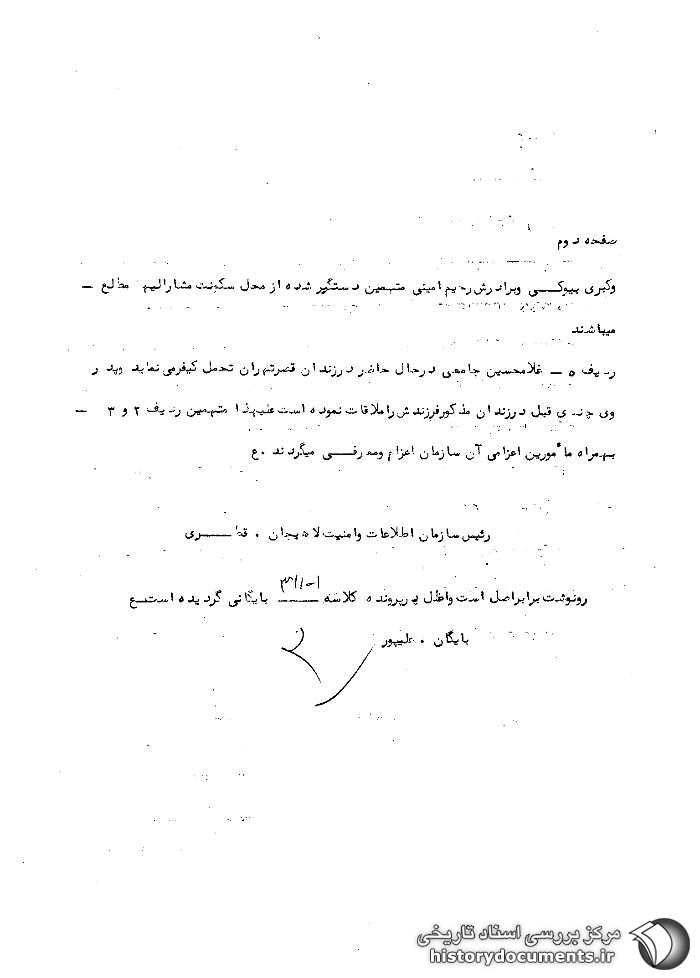 صفحه دوم
وکبری بیوکــی وبرادرش رحیم امینی متهمین دستگیر شده از محل سکونت مشارالیها مطلع –
میباشند
ردیف ۵ – غلامحسین جامعی درحال حاضر درزندان قصرتهران تحمل کیفرمی نماید وپدر
وی چندی قبل درزندان مذکورفرزندش راملاقات نموده است علیهذا متهمین ردیف ۲ و ۳ –
بهمراه مأمورین اعزامی آن سازمان اعزام ومعرفــی میگردند .ع
رئیس سازمان اطلاعات وامنیت لاهیجان .
رونوشت برابراصل است واصل درپرونده کلاسه بایگانی گردیده است ع
بایگان . علیپور
مرکز بررسی اسناد تاریخی
historydocuments.ir